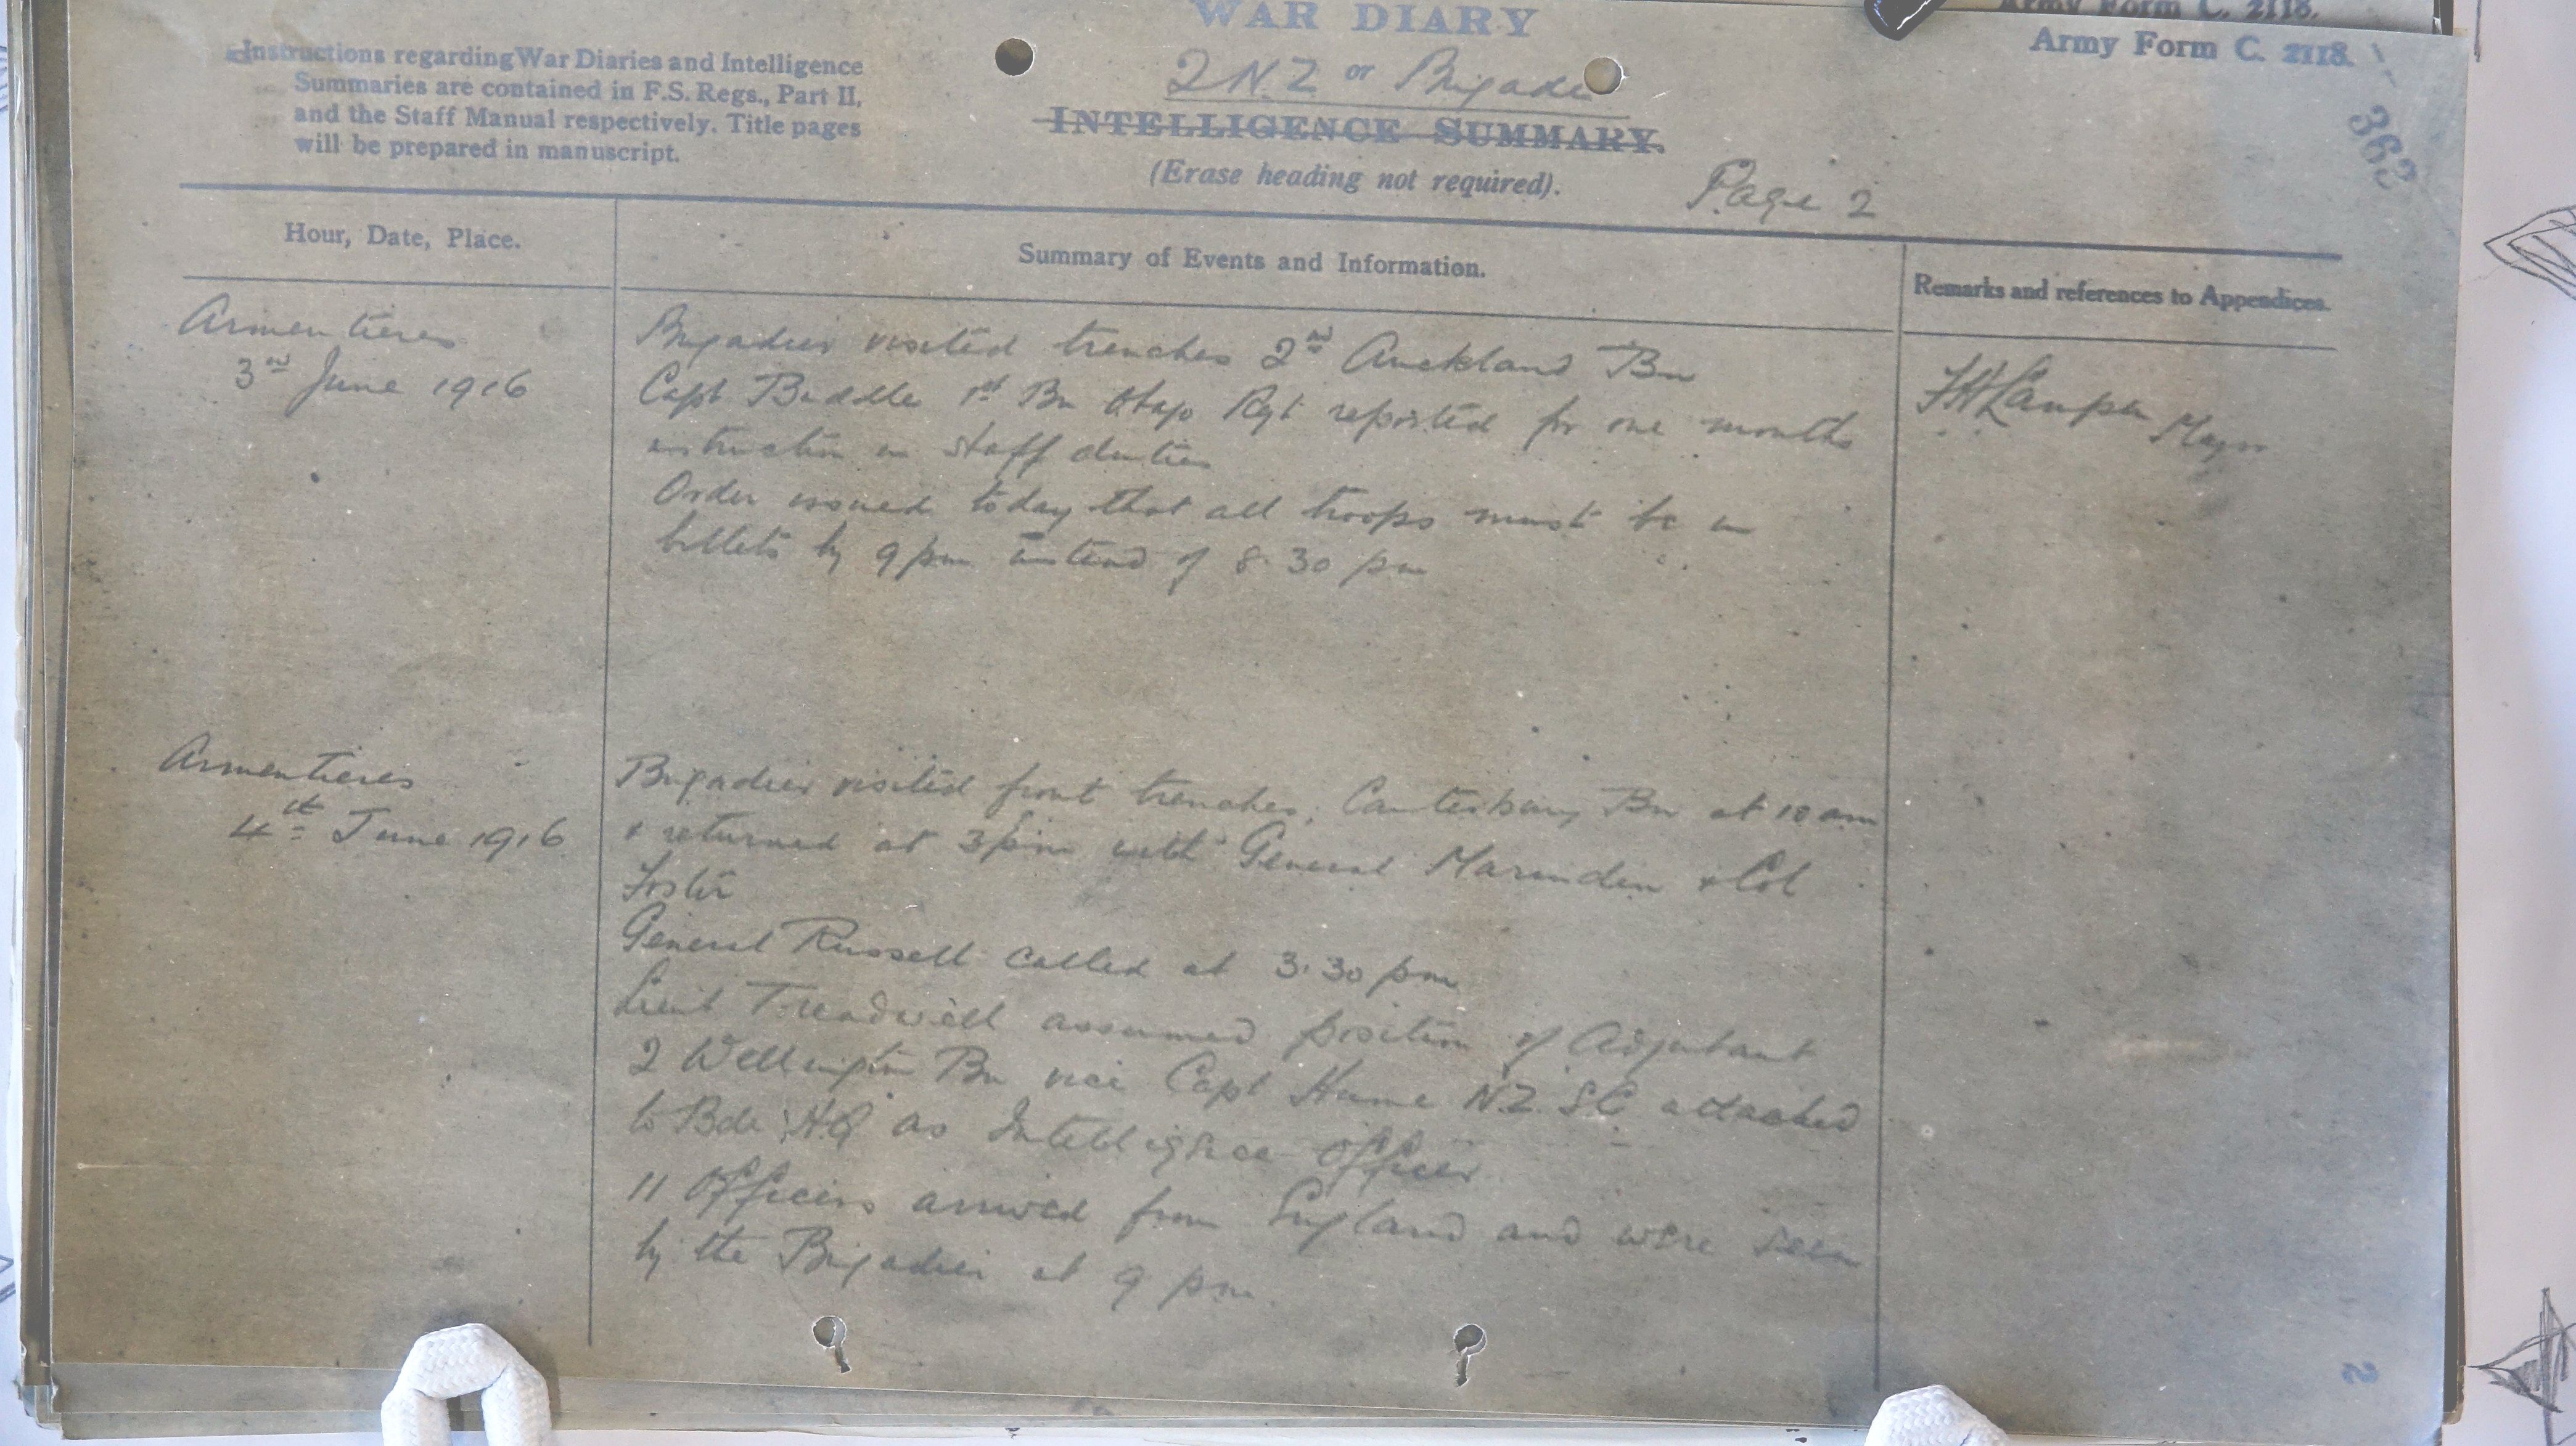 WAR DIARY
Army Form C. 2118.
Army Form C. 2118.
Instructions regarding War Diaries and Intelligence
Summaries are contained in F.S. Regs., Part II,
and the Staff Manual respectively. Title pages
will be prepared in manuscript.
2 N.Z or Brigade
INTELLIGENCE SUMMARY.
(Erase heading not required).
Page 2
363
Hour, Date, Place.
Summary of Events and Information.
Remarks and references to Appendices.
Armentieres
3rd June 1916
Brigadier visited trenches 2nd Auckland Bn
Capt 1st Bn Otago Rgt reported for one months
instruction in staff duties
Order issued today that all troops must be in
billets by 9 pm instead of 8.30 pm
Major
Armentieres
4th June 1916
Brigadier visited front trenches, Canterbury Bn at 10 am
& returned at 3 pm with General & Col
Foster
General Russell called at 3.30 pm
Lieut Treadwell assumed position of Adjutant
2 Wellington Bn vice Capt Hume N.Z. S.C attached
to Bde H.Q as Intelligence Officer
11 Officers arrived from England and were seen
by the Brigadier at 9 pm.
2